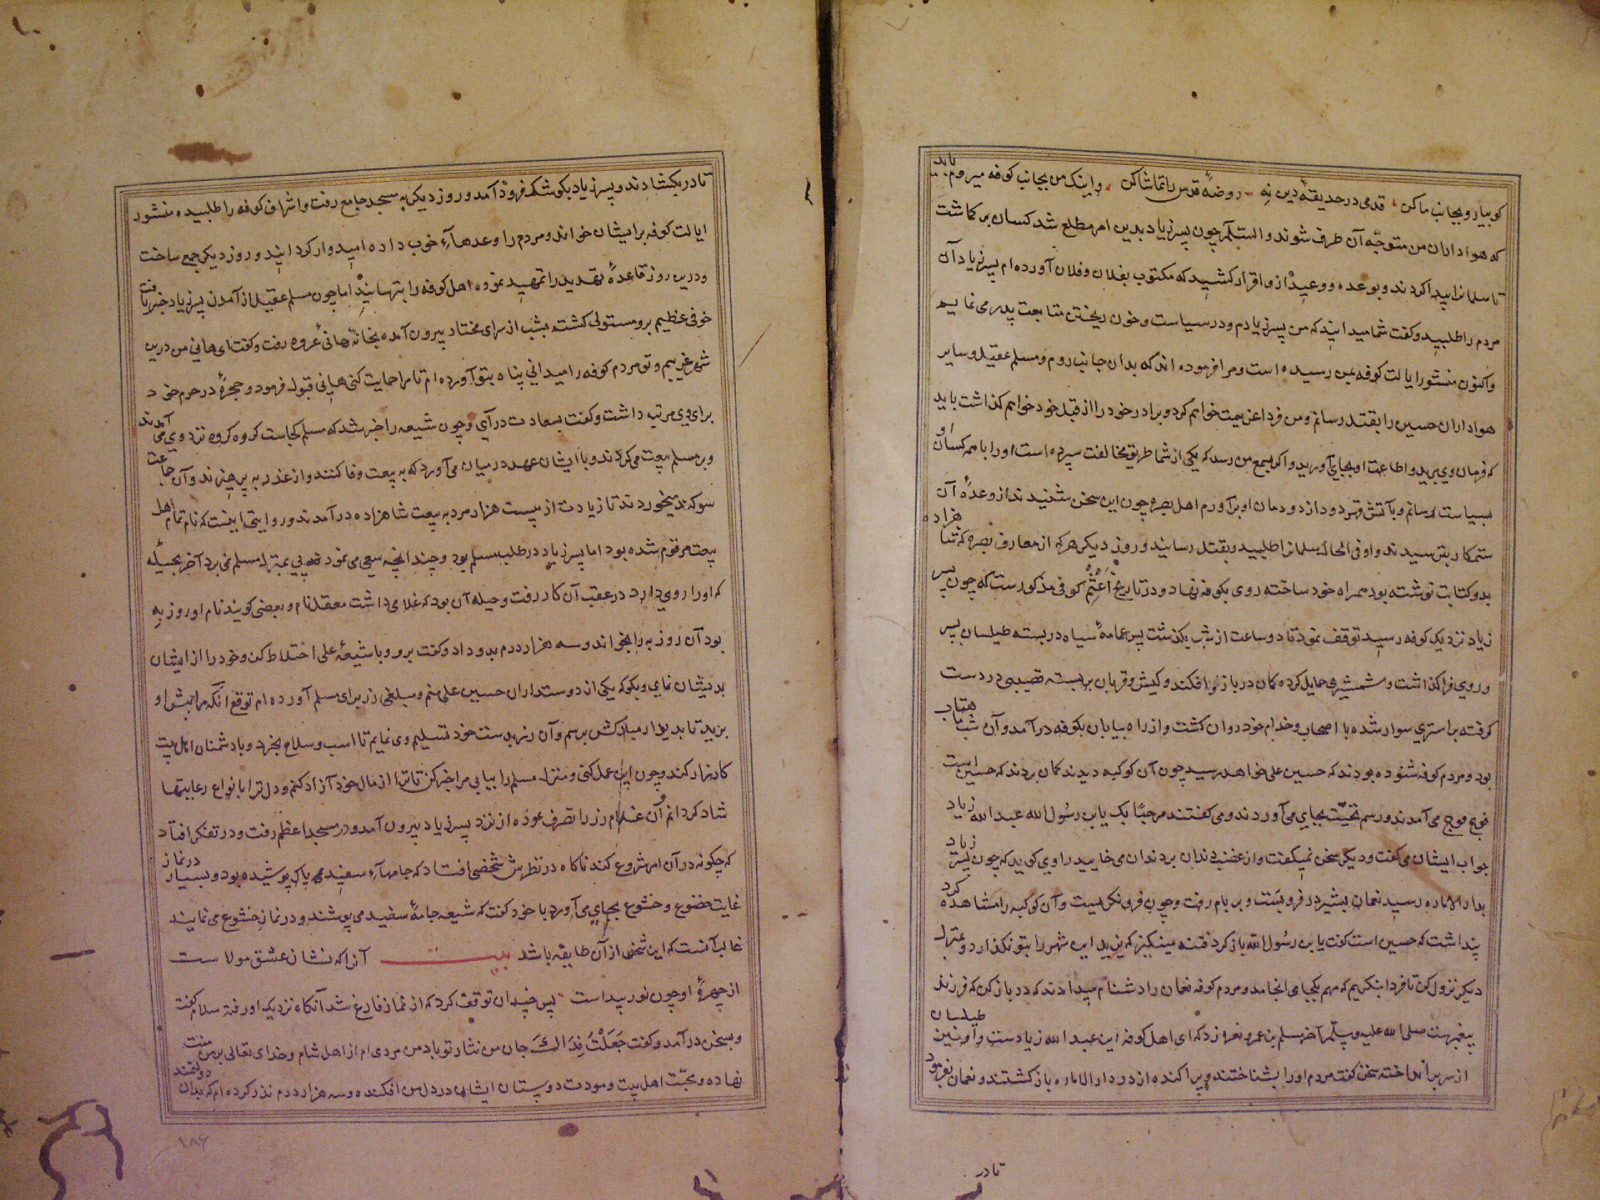 کوبیا رو بجانب ما کن قدمی در حدیقهٔ دین نه روضهٔ قدس را تماشا کن و اینک من بجانب کوفه میروم باید
که هواداران من متوجّه آن طرف شوند والسّلم چون پسر زیاد بدین امر مطلع شد کسان بر کماشت
تا سلمانرا پیدا کردند و بوعده و وعید از و اقرار کشید که مکتوب بفلان و فلان آورده ام پسر زیاد آن
مردم را طلبید و کفت شما میدانید که من پسر زیادم و در سیاست و خون ریختن متابعت پدر می نمایم
و اکنون منشور ایالت کوفه بمن رسیده است و مرا فرموده اند که بدان جانب روم و مسلم عقیل و سایر
هواداران حسین را بقتل رسانم و من فردا عزیمت خواهم کرد و برادر خود را از قبل خود خواهم کذاشت باید
که فرمان وی برید و اطاعت او بجای آورید و اکر بسمع من رسد که یکی از شما طریق مخالفت سپرده است او را با همه کسان او
بسیاست رسانم و بآتش قهر دود از دودمان او برآورم اهل بصره چون این سخن شنیدند از وعدهٔ آن
ستمکار بترسیدند و او فی الحال سلمانرا طلبید و بقتل رسانید و روز دیکر هر که از معارف بصره که تنها هزار
بدو کتابت نوشته بود همراه خود ساخته روی بکوفه نهاد و در تاریخ اعثم کوفی مذکورست که چون پسر
زیاد نزدیک کوفه رسید توقف نمود تا دو ساعت از شب بکذشت پس عمامهٔ سیاه در بسته طیلسان بسر
و روی فرا کذاشت و شمشیری حمایل کرده کمان در بازو افکند و کیش و قربان بر بسته قضیبی در دست
کرفته بر استری سوار شده با اصحاب و خدام خود روان کشت و از راه بیابان بکوفه در آمد و آن شب ماهتاب
بود و مردم کوفه شنوده بودند که حسین علی خواهد رسید چون آن کوکبه دیدند کمان بردند که حسین است
فوج فوج می آمدند و رسم تحیّت بجای می آوردند و می کفتند مرحبا بک یا بن رسول الله عبد الله زیاد
جواب ایشان می کفت و دیکر سخن نمیکفت و از غضب دندان بر دندان می خایید راوی کوید که چون پسر زیاد
بدار الاماره رسید نعمان بشیر در فرو بست و بر بام رفت و چون فرو نکریست و آن کوکبه را مشاهده کرد
پنداشت که حسین است کفت یا بن رسول الله باز کرد و فتنه مینکیز که یزید این شهر را بتو نکذارد و بمنزل
دیکر نزول کن تا فردا بنکریم که مهم بکجا می انجامد و مردم کوفه نعمان را دشنام میدادند که در باز کن که فرزند
پیغمبرست صلی الله علیه و سلّم آخر مسلم بن عمرو نعره زد که ای اهل کوفه این عبد الله زیادست و او نیز طیلسان
از سر بر انداخته سخن کفت مردم او را بشناختند و پراکنده از در دار الاماره باز کشتند و نعمان بفرمود
تا در
تا در بکشادند و پسر زیاد بکوشک فرود آمد و روز دیکر به مسجد جامع رفت و اشراف کوفه را طلبیده منشور
ایالت کوفه بر ایشان خواند و مردم را وعدهاء خوب داده امیدوار کردانید و روز دیکر جمع ساخت
و درین روز قاعدهٔ تهدید را تمهید نمود و اهل کوفه را بترسانید اما چون مسلم عقیل از آمدن پسر زیاد خبر یافت
خوفی عظیم برو مستولی کشته بشب از سرای مختار بیرون آمده بخانهٔ هانی عروه رفت و کفت ای هانی من درین
شهر غریبم و تو مردم کوفه را میدانی پناه بتو آورده ام تا مرا حمایت کنی هانی قبول فرمود و حجرهٔ در حرم خود
برای وی مرتب داشت و کفت بسعادت در آی و چون شیعه را خبر شد که مسلم کجاست کروه کروه نزد وی می آمدند
و بر مسلم بیعت می کردند و با ایشان عهد در میان می آورد که به بیعت وفا کنند و از غدر به پرهیزند و آن جماعت
سوکند میخوردند تا زیادت از بیست هزار مرد به بیعت شاهزاده در آمدند و روایتی اینست که نام تمام اهل
بیعت مرقوم شده بود اما پسر زیاد در طلب مسلم بود و چندانچه سعی می نمود پی بمنزل مسلم نمی برد آخر بحیلهٔ
که او را روی داد در عقب آن کار رفت و حیله آن بود که غلامی داشت معقل نام و بعضی کویند نام او روز به
بود آن روز به را بخواند و سه هزار درم بدو داد و کفت برو و با شیعهٔ علی اختلاط کن و خود را از ایشان
بدیشان نمای و بکو که یکی از دوستداران حسین علی منم و مبلغی زر برای مسلم آورده ام توقع آنکه مرا پیش او
برید تا بدیدار مبارکش برسم و آن زر بدست خود تسلیم وی نمایم تا اسب و سلاح بخرد و با دشمنان اهل بیت
کارزار کند و چون این عمل کنی و منزل مسلم را بیابی مرا خبر کن تا ترا از مال خود آزاد کنم و دل ترا بانواع رعایتها
شاد کردانم آن غلام زر را تصرف نموده از نزد پسر زیاد بیرون آمد و در مسجد اعظم رفت و در تفکر افتاد
که چکونه در آن امر شروع کند ناکاه در نظرش شخصی افتاد که جامهاء سفید پاک پوشیده بود و بسیار در نماز
غایت خضوع و خشوع بجای می آورد با خود کفت که شیعه جامهٔ سفید می پوشند و در نماز خشوع می نمایند
غالب آنست که این شخص از آن طایفه باشد بیت آنرا که نشان عشق مولاست
از چهرهٔ او چون نور پیداست پس چندان توقف کرد که از نماز فارغ شد آنکاه نزدیک او رفته سلام کفت
و بسخن در آمد و کفت جَعَلْتُ فِدَاکَ جان من نثار تو باد من مردی ام از اهل شام و خدای تعالی بر من منت
نهاده و محبّت اهل بیت و مودت دوستان ایشان در دل من افکنده و سه هزار درم نذر کرده ام که بدان دولتمند
۱۸۶